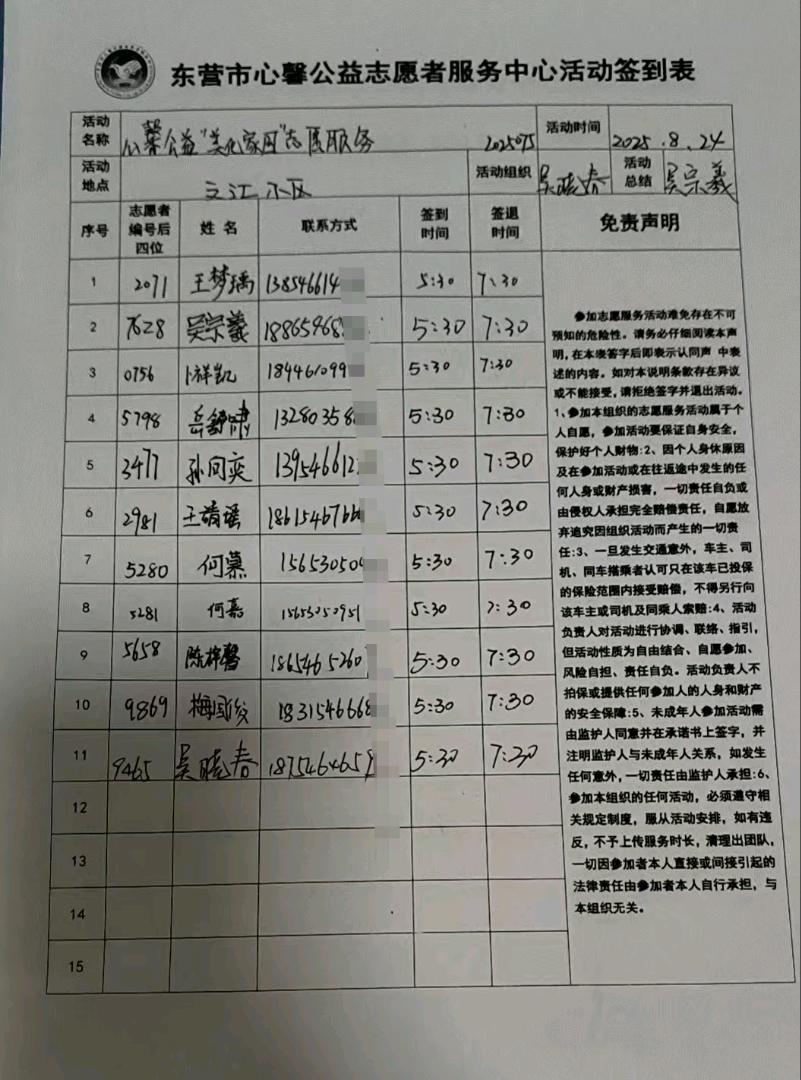 东营市心馨公益志愿者服务中心活动签到表
活动名称 心馨公益"美化家园"志愿服务 2025095 活动时间 2025.8.24
活动地点 文江小区 活动组织 吴晓春 活动总结 吴宗羲
序号 志愿者编号后四位 姓名 联系方式 签到时间 签退时间 免责声明
1 2071 王梦瑀 138546614 5:30 7:30
2 7628 吴宗羲 18865968 5:30 7:30
3 0756 祥凯 184461099 5:30 7:30
4 5798 岳 啸 132803588 5:30 7:30
5 3477 孙同奕 139546612 5:30 7:30
6 2981 王靖谣 186154676 5:30 7:30
7 5280 何慕 15653050 5:30 7:30
8 5281 何嘉 15653050951 5:30 7:30
9 5658 陈梓馨 1865465260 5:30 7:30
10 9869 梅国俊 1831546668 5:30 7:30
11 9465 吴晓春 1875464659 5:30 7:30
12
13
14
15
参加志愿服务活动难免存在不可
预知的危险性。请务必仔细阅读本声
明,在本表签字后即表示认同声 中表
述的内容。如对本说明条款存在异议
或不能接受,请拒绝签字并退出活动。
1、参加本组织的志愿服务活动属于个
人自愿,参加活动要保证自身安全,
保护好个人财物:2、因个人身体原因
及在参加活动或在往返途中发生的任
何人身或财产损害,一切责任自负或
由侵权人承担完全赔偿责任,自愿放
弃追究因组织活动而产生的一切责
任:3、一旦发生交通意外,车主、司
机、同车搭乘者认可只在该车已投保
的保险范围内接受赔偿,不得另行向
该车主或司机及同乘人索赔:4、活动
负责人对活动进行协调、联络、指引,
但活动性质为自由结合、自愿参加、
风险自担、责任自负。活动负责人不
担保或提供任何参加人的人身和财产
的安全保障:5、未成年人参加活动需
由监护人同意并在承诺书上签字,并
注明监护人与未成年人关系,如发生
任何意外,一切责任由监护人承担:6、
参加本组织的任何活动,必须遵守相
关规定制度,服从活动安排,如有违
反,不予上传服务时长,清理出团队,
一切因参加者本人直接或间接引起的
法律责任由参加者本人自行承担,与
本组织无关。